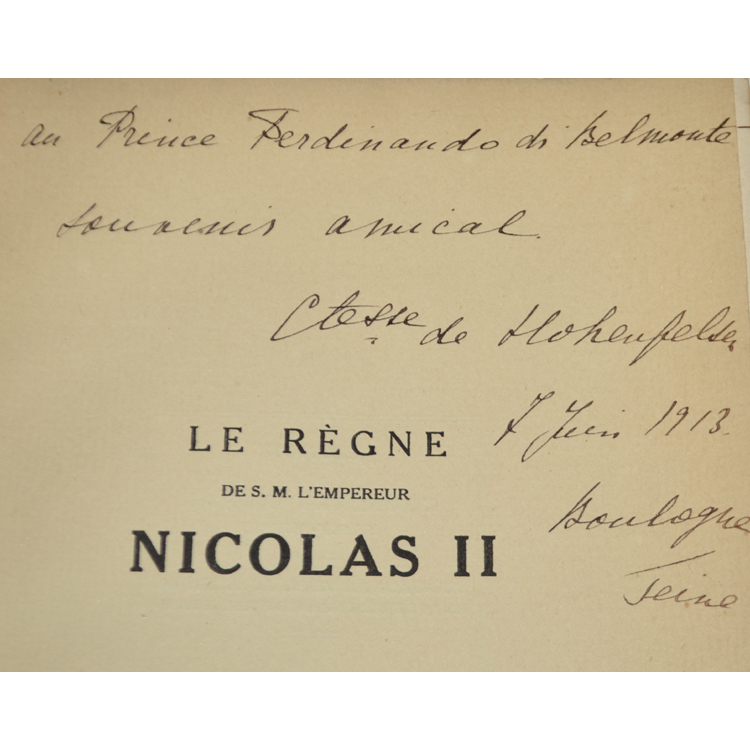 au Prince Ferdinando di Belmonte
souvenir amical.
Ctesse de Hohenfelsen
7 Juin 1913.
LE RÈGNE
DE S. M. L'EMPEREUR
NICOLAS II
Boulogne
Seine